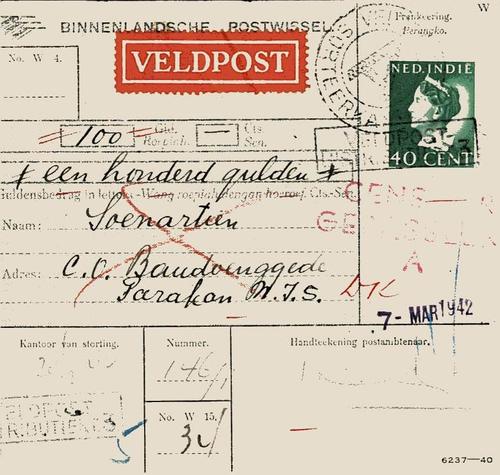 W
BINNENLANDSCHE POSTWISSEL
No. W 4.
VELDPOST
Frankeering.
Perangko.
NED. INDIE
40 CENT
100 Gld. Roepiah. — Cts. Sen.
VELDPOST
een honderd gulden
Guldensbedrag in letters. - Wang roepiah dengan hoeroef. Cts.-Sen
CENS
Naam: Soenartien
A
Adres: C.O. Baudoenggede
Tarakan N.I.S.
7 - MAR 1942
Kantoor van storting.
Nummer.
Handteekening postambtenaar.
146/1
No. W 15.
34/
5
6237—40